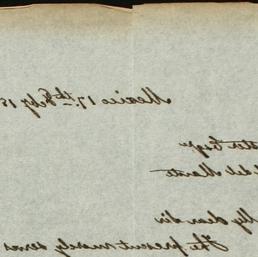 Mexico 17.th Feby. 18
Esqr
del Monte
My dear Sir
The present merely serves